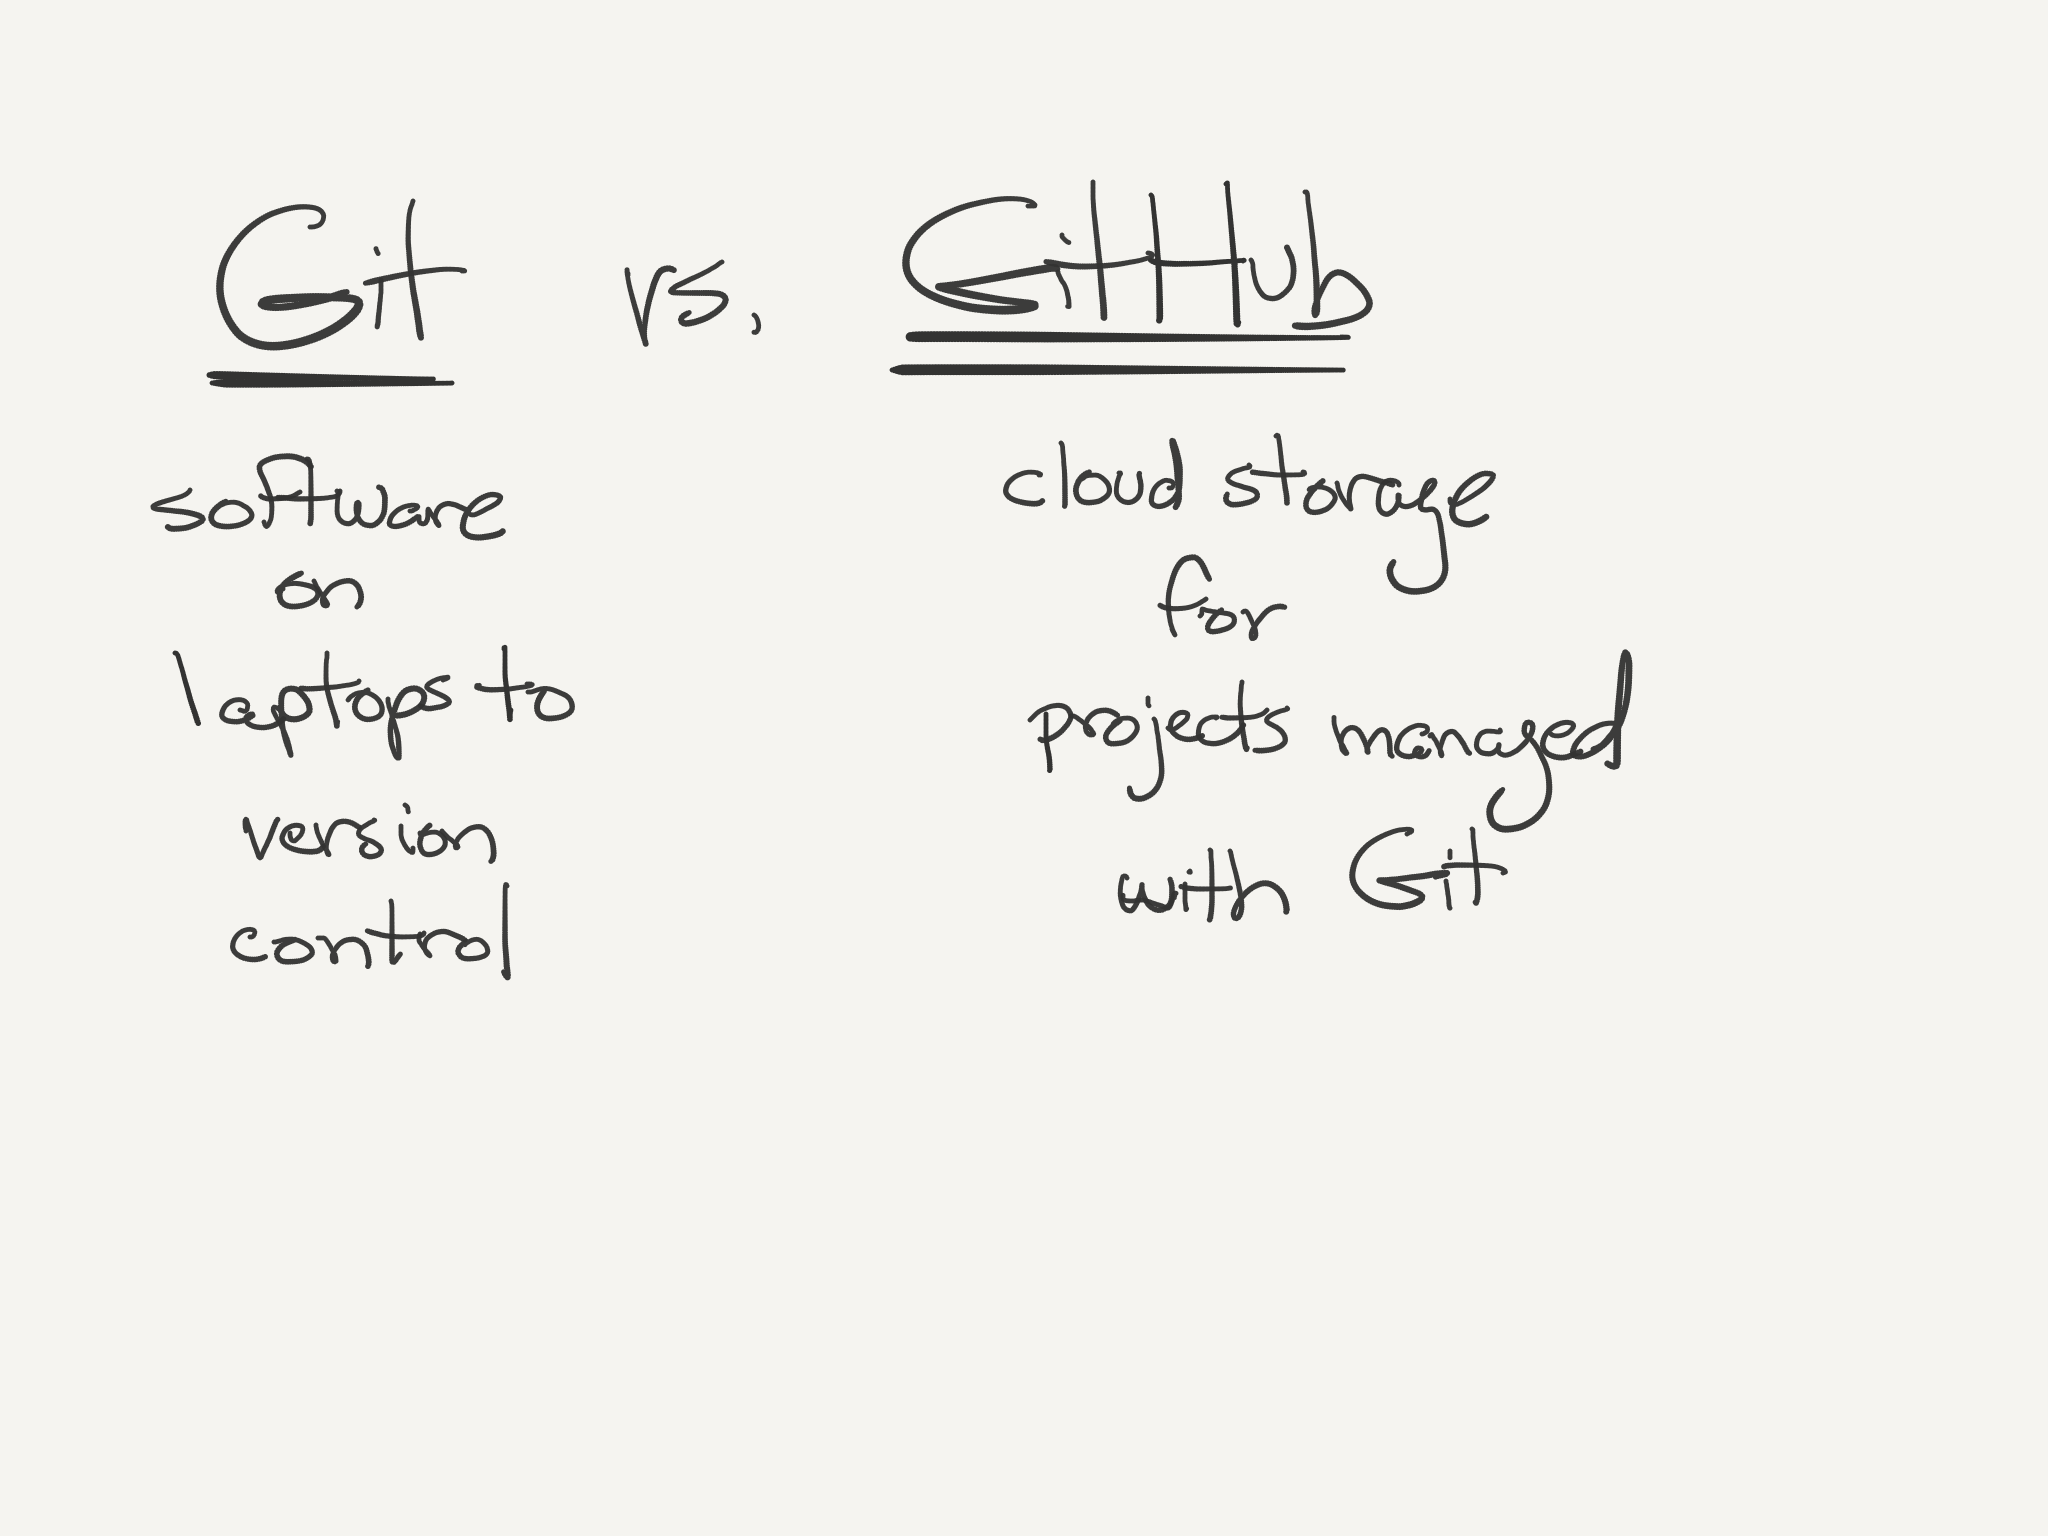 Git vs. GitHub
software
on
laptops to
version
control
cloud storage
for
projects managed
with Git